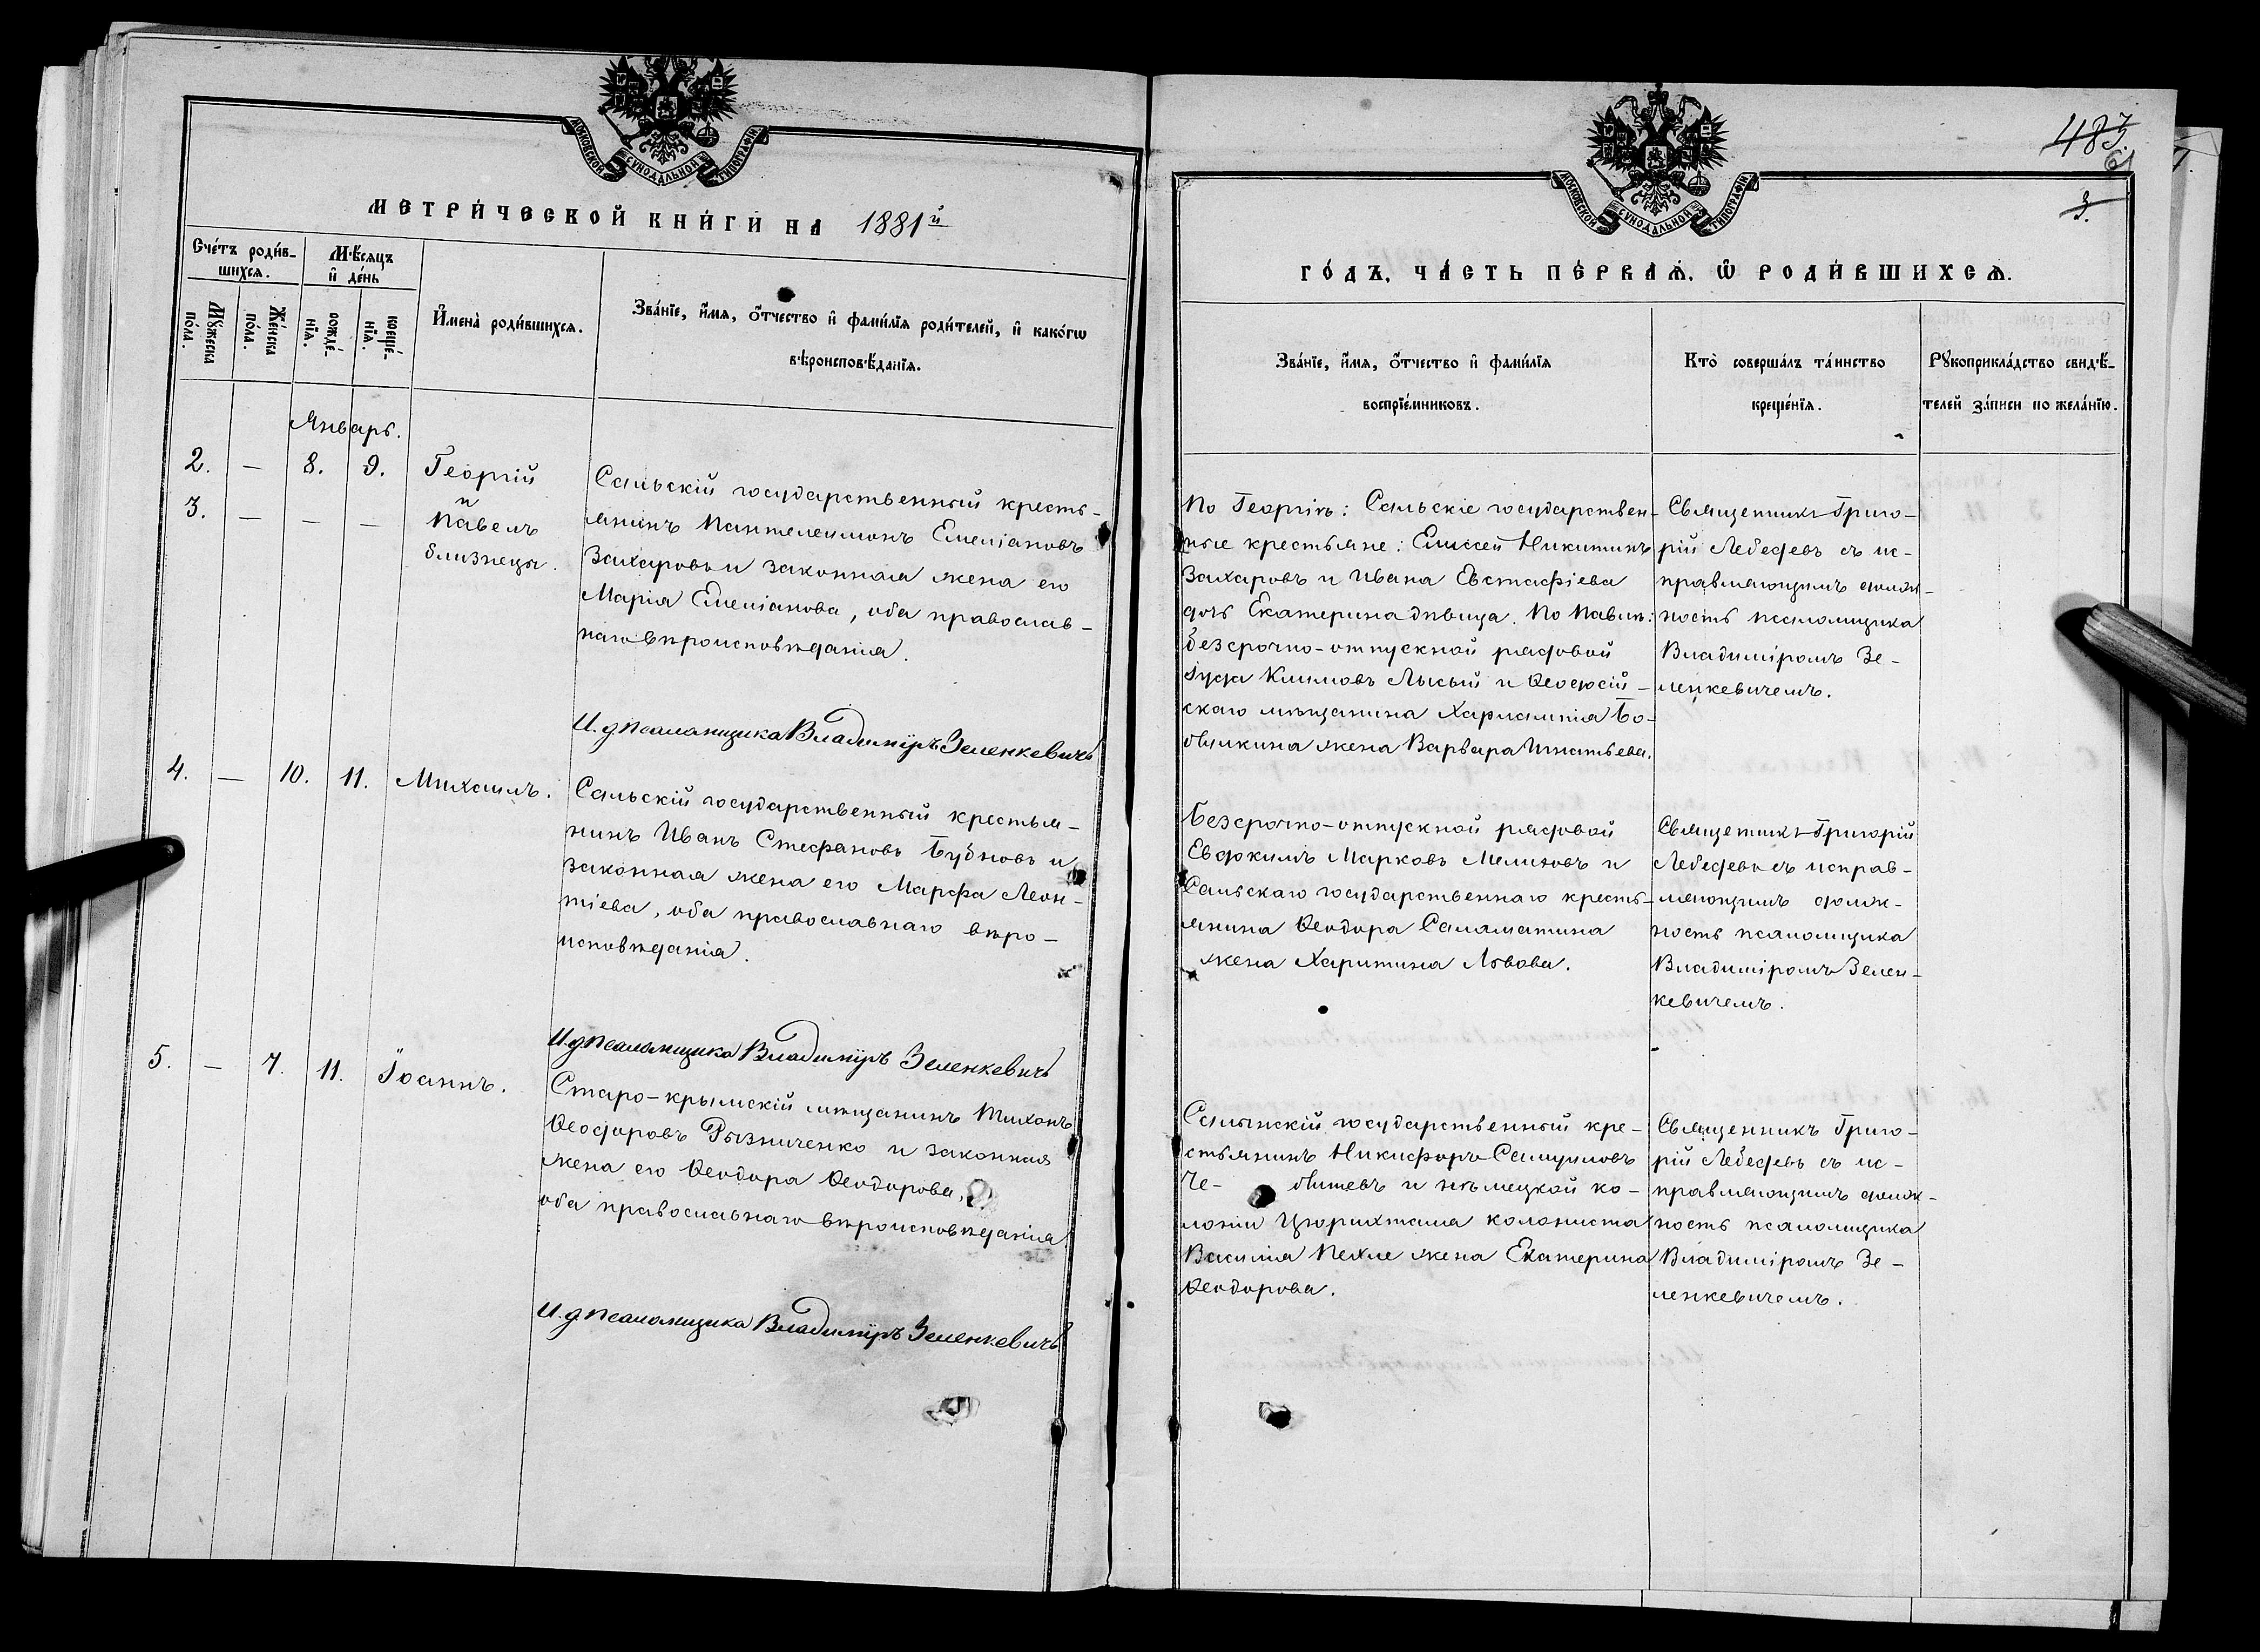 МОСКОВСКОЙ СѴНОДАЛЬНОЙ ТИПОГРАФІИ
МЕТРИ́ЧЕСКОЙ КНИ́ГИ НА 1881й
Сче́тъ роди́в-
шихсѧ.
Мꙋ́жеска
по́ла.
Же́нска
по́ла.
Мѣ́сѧцъ
и҆ де́нь
рожде́-
нїѧ.
креще́-
нїѧ.
И҆мена̀ роди́вшихсѧ.
Зва́нїе, и҆́мѧ, ѻ҆́тчество и҆ фами́лїѧ роди́телей, и҆ како́гѡ
вѣроисповѣ́данїѧ.
Январь.
2. — 8. 9. Георгій
и
3. — — — Павелъ
близнецы.
Сальскій государственный кресть-
янинъ Пантелеимонъ Емеліановъ
Захаровъ и законная жена его
Марія Емеліанова, оба православ-
наго вѣроисповѣданія.
И. д. псаломщика Владиміръ Зеленкевичъ
4. — 10. 11. Михаилъ.
Сальскій государственный крестья-
нинъ Иванъ Стефановъ Бубновъ и
законная жена его Марфа Леон-
тіева, оба православнаго вѣро-
исповѣданія.
И. д. псаломщика Владиміръ Зеленкевичъ
5. — 7. 11. Іоаннъ.
Старо-крымскій мѣщанинъ Тихонъ
Ѳеодоровъ Рызниченко и законная
жена его Ѳеодора Ѳеодорова,
оба православнаго вѣроисповѣданія.
И. д. псаломщика Владиміръ Зеленкевичъ
МОСКОВСКОЙ СѴНОДАЛЬНОЙ ТИПОГРАФІИ
3.
ГО́ДЪ, ЧА́СТЬ ПЕ́РВАѦ, Ѽ РОДИ́ВШИХСѦ.
Зва́нїе, и҆́мѧ, ѻ҆́тчество и҆ фами́лїѧ
воспрїе́мниковъ.
Кто̀ соверша́лъ та́инство
креще́нїѧ.
Рꙋкоприкла́дство свидѣ́-
телей за́писи по жела́нїю.
По Георгіѣ: Сальскіе государствен-
ные крестьяне: Елисей Никитинъ
Захаровъ и Ивана Евстафіева
дочь Екатерина дѣвица. По Павлѣ:
безсрочно-отпускной рядовой
Іуда Климовъ Лысый и Ѳеодосій-
скаго мѣщанина Харлампія Бо-
былкина жена Варвара Игнатьева.
Священникъ Григо-
рій Лебедевъ съ ис-
правляющимъ долж-
ность псаломщика
Владиміромъ Зе-
ленкевичемъ.
Безсрочно-отпускной рядовой
Евдокимъ Марковъ Мелиховъ и
Сальскаго государственнаго кресть-
янина Ѳеодора Саламатина
жена Харитина Львова.
Священникъ Григорій
Лебедевъ съ исправ-
ляющимъ долж-
ность псаломщика
Владиміромъ Зелен-
кевичемъ.
государственный кре-
стьянинъ Никифоръ Самуиловъ
Че- бышевъ и нѣмецкой ко-
лоніи Цюрихталя колониста
Василія жена Екатерина
Ѳеодорова.
Священникъ Григо-
рій Лебедевъ съ ис-
правляющимъ долж-
ность псаломщика
Владиміромъ Зе-
ленкевичемъ.